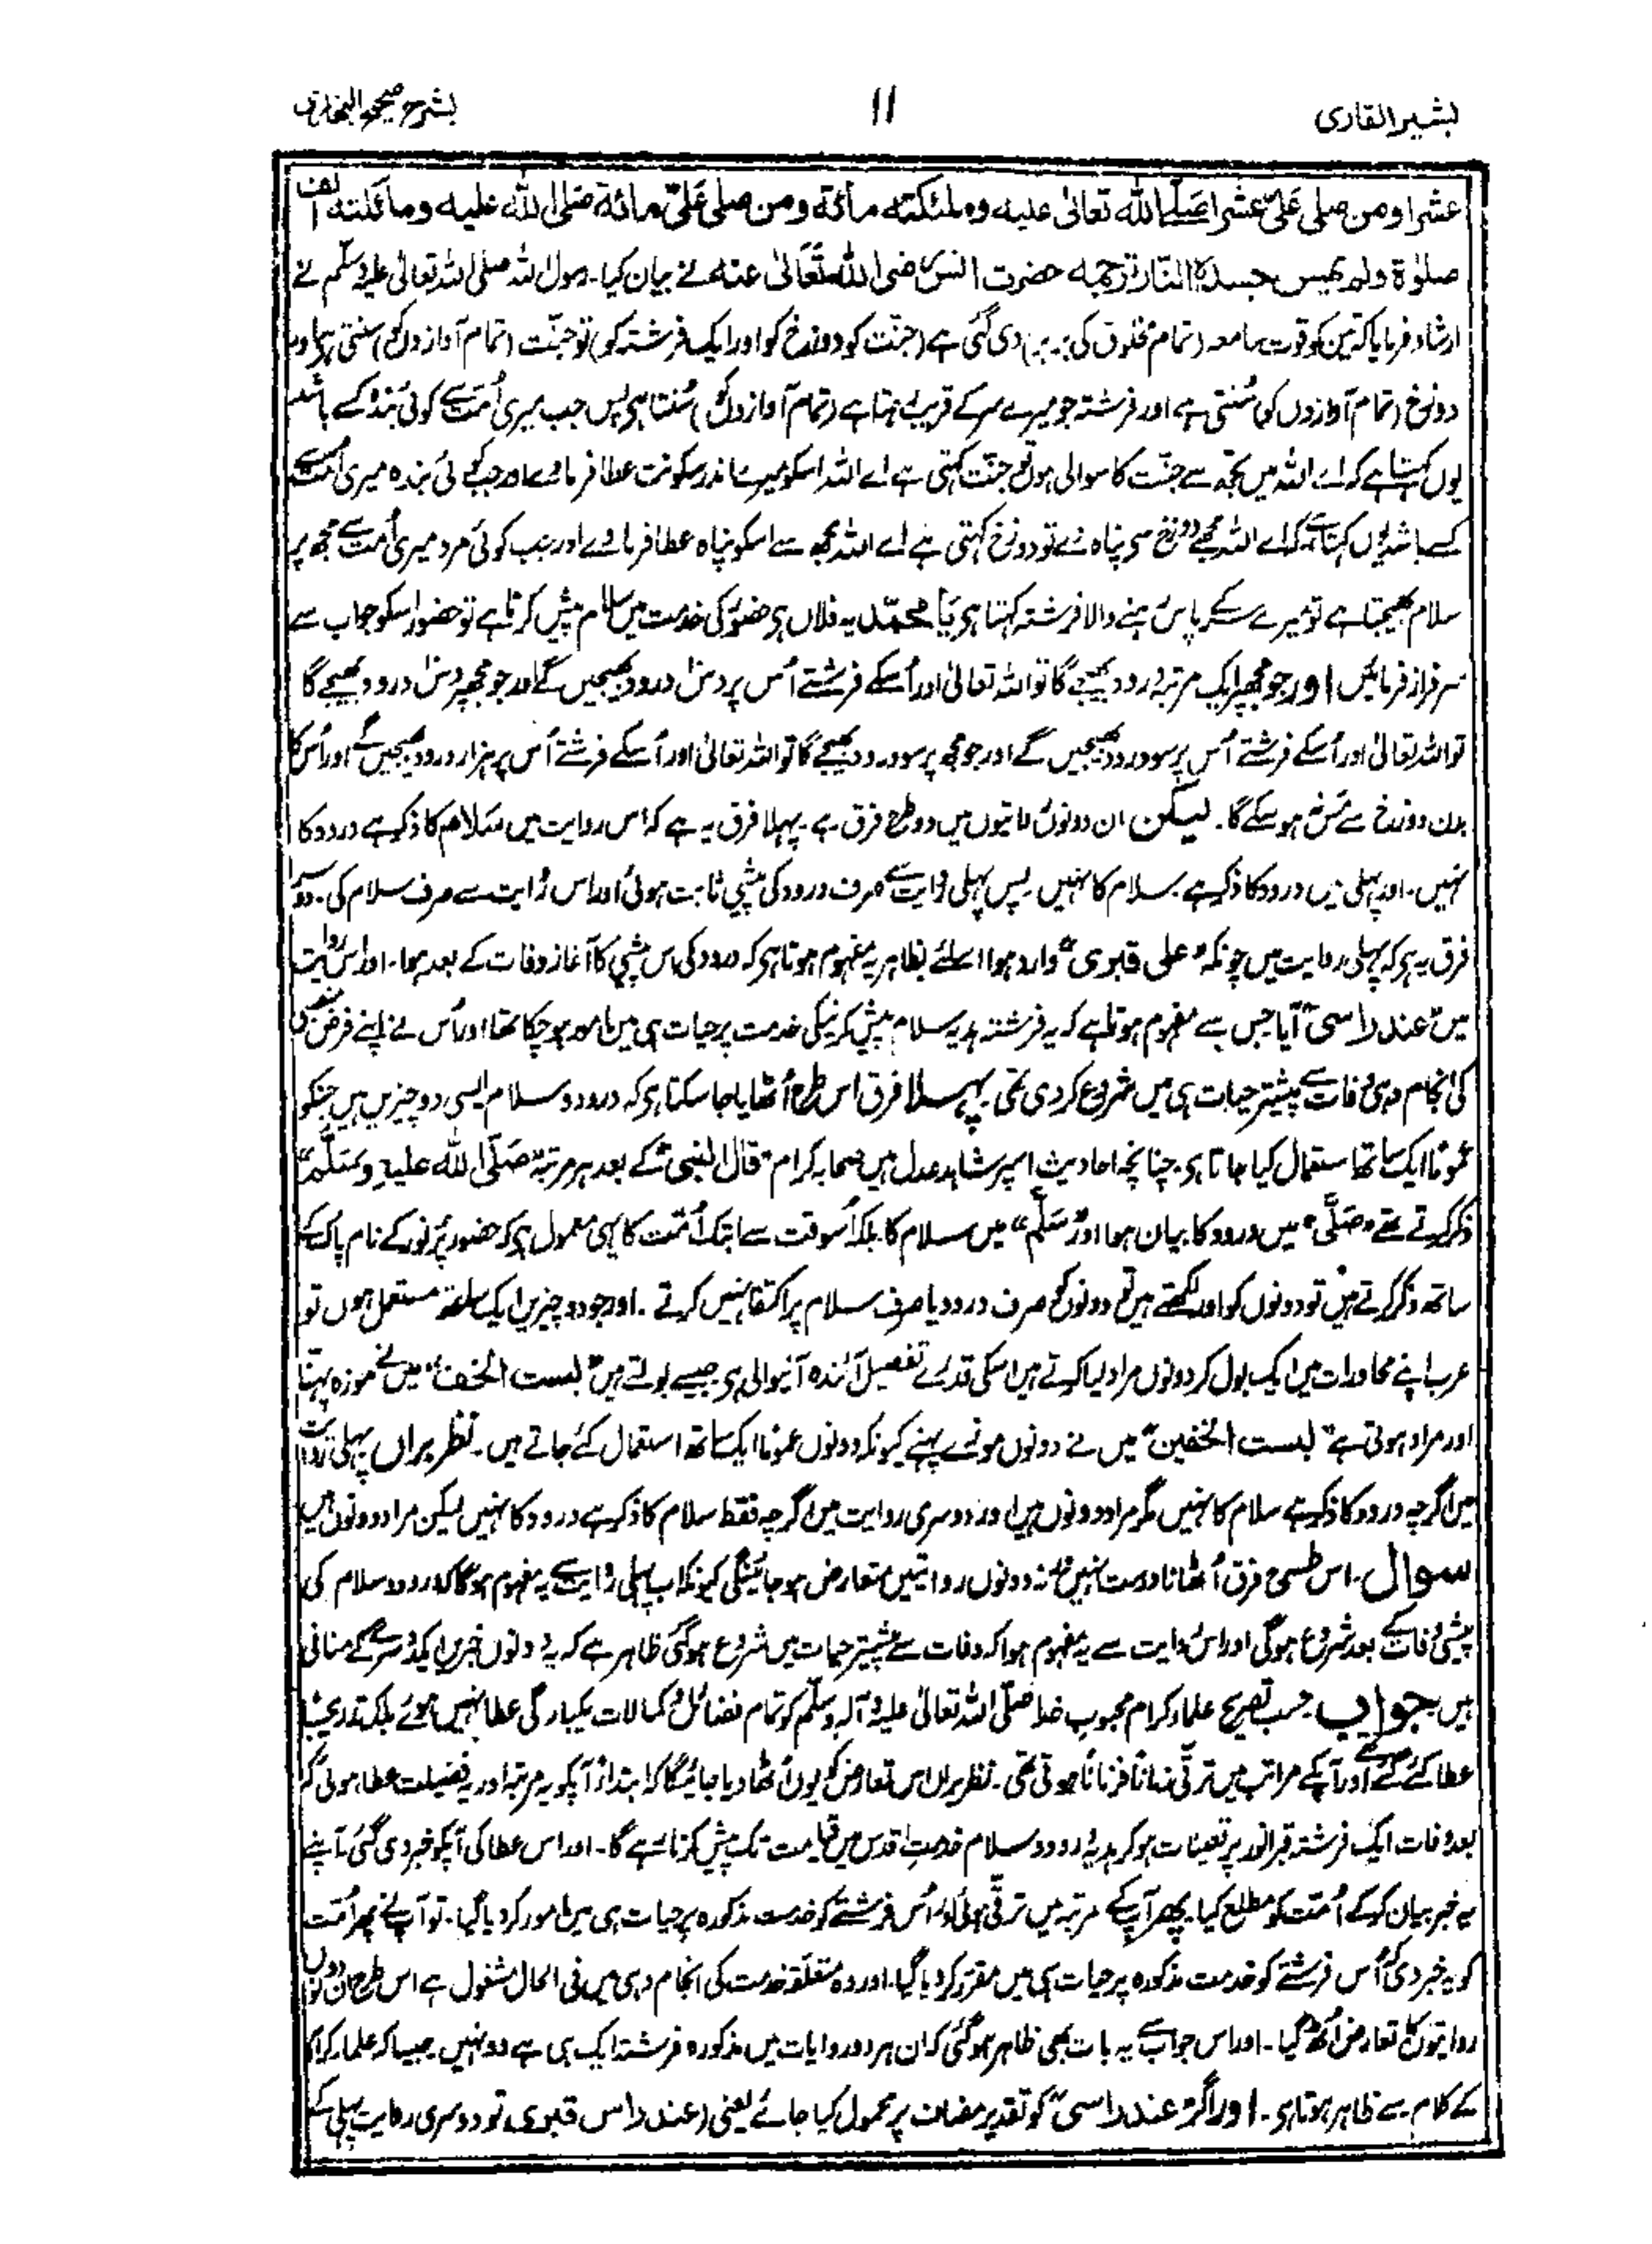 بشیر القاری
11
بشرح صحیح البخاری
عشرا ومن صلی علیّ عشرا صلے اللہ تعالیٰ علیہ وملئکتہ مائۃ ومن صلی علیّ مائۃ صلی اللہ علیہ وملئکتہ الف
صلوٰۃ ولم یمس جسدہ النار ترجمہ حضرت انس رضی اللہ تعالیٰ عنہ نے بیان کیا۔ رسول اللہ صلی اللہ تعالیٰ علیہ وسلم نے
ارشاد فرمایا کہ تین کو قوت سامعہ (تمام مخلوق کی برابر) دی گئی ہے (جنت کو دوزخ کو اور ایک فرشتہ کو) تو جنت (تمام آوازوں کو) سنتی ہے اور
دوزخ (تمام آوازوں کو) سُنتی ہے اور فرشتہ جو میرے سر کے قریب رہتا ہے (تمام آوازوں کو) سُنتا ہے پس جب میری اُمت سے کوئی بندہ کے باشد
یوں کہتا ہے کہ اے اللہ میں تجھ سے جنّت کا سوالی ہوں تو جنّت کہتی ہے اے اللہ اسکو میرے اندر سکونت عطا فرمادے اور جب کوئی بندہ میری اُمت سے
کسے باشد یوں کہتا ہے کہ اے اللہ مجھے دوزخ سی پناہ دے تو دوزخ کہتی ہے اے اللہ مجھ سے اسکو پناہ عطا فرمادے اور جب کوئی مرد میری اُمت سے مجھ پر
سلام بھیجتا ہے تو میرے سر کے پاس رہنے والا فرشتہ کہتا ہی یَا محمّد یہ فلاں ہی حضور کی خدمت میں سلام پیش کرتا ہے تو حضور اسکو جواب سے
سرفراز فرمائیں اور جو مجھپر ایک مرتبہ درود بھیجے گا تو اللہ تعالیٰ اور اُسکے فرشتے اُس پر دس درود بھیجیں گے اور جو مجھپر دس درود بھیجے گا
تو اللہ تعالیٰ اور اُسکے فرشتے اُس پر سو درود بھیجیں گے اور جو مجھ پر سو درود بھیجے گا تو اللہ تعالیٰ اور اُسکے فرشتے اُس پر ہزار درود بھیجیں گے اور اُس کا
بدن دوزخ سے مَس نہ ہو سکے گا۔ لیکن ان دونوں روایتوں میں دو طرح فرق ہے۔ پہلا فرق یہ ہے کہ اس روایت میں سَلام کا ذکر ہے درود کا
نہیں۔ اور پہلی میں درود کا ذکر ہے۔ سلام کا نہیں پس پہلی روایت سے صرف درود کی پیشی ثابت ہوئی اور اس روایت سے صرف سلام کی۔ دوسرا
فرق یہ ہی کہ پہلی روایت میں چونکہ "علی قبری" وارد ہوا اسلئے بظاہر یہ مفہوم ہوتا ہی کہ درود کی اس پیشی کا آغاز وفات کے بعد ہوا۔ اور اس روایت
میں "عند راسی" آیا جس سے مفہوم ہوتا ہے کہ یہ فرشتہ ہدیہ سلام پیش کرنیکی خدمت پر حیات ہی میں مامور ہو چکا تھا اور اُس نے اپنے فرض منصبی
کی انجام دہی وفات سے پیشتر حیات ہی میں شروع کر دی تھی۔ پہلا فرق اس طرح اُٹھایا جا سکتا ہی کہ درود و سلام ایسی دو چیزیں ہیں جنکو
عموماً ایک ساتھ استعمال کیا جاتا ہی۔ چنانچہ احادیث اسپر شاہد عدل ہیں صحابہ کرام "قال النبی" کے بعد ہر مرتبہ "صَلّی اللہ علیہ وسَلّم"
ذکر کرتے تھے "صَلّٰی" میں درود کا بیان ہوا اور "سَلّم" میں سلام کا بلکہ اُسوقت سے ابتک اُمّت کا یہی معمول ہی کہ حضور پُرنور کے نام پاک کے
ساتھ ذکر کرتے ہیں تو دونوں کو اور لکھتے ہیں تو دونوں کو صرف درود یا صرف سلام پر اکتفا نہیں کرتے۔ اور جو دو چیزیں ایک ساتھ مستعمل ہوں تو
عرب اپنے محاورات میں ایک بول کر دونوں مراد لیا کرتے ہیں اسکی قدرے تفصیل آئندہ آنیوالی ہی جیسے بولتے ہیں "لبست الخف" میں نے موزہ پہنا
اور مراد ہوتی ہے "لبست الخفین" میں نے دونوں موزے پہنے کیونکہ دونوں عموماً ایک ساتھ استعمال کئے جاتے ہیں۔ نظر براں پہلی روایت
میں اگرچہ درود کا ذکر ہے سلام کا نہیں مگر مراد دونوں ہیں اور دوسری روایت میں اگرچہ فقط سلام کا ذکر ہے درود کا نہیں لیکن مراد دونوں ہیں
سوال۔ اس طرح فرق اُٹھانا درست نہیں ورنہ دونوں روایتیں متعارض ہو جائینگی کیونکہ اب پہلی روایت سے یہ مفہوم ہوگا کہ درود و سلام کی
پیشی وفات کے بعد شروع ہوگی اور اس روایت سے یہ مفہوم ہوا کہ وفات سے پیشتر حیات میں شروع ہوگئی ظاہر ہے کہ یہ دونوں خبریں ایک دوسرے کے منافی
ہیں جواب حسب تصریح علماء کرام محبوب خدا صلّی اللہ تعالیٰ علیہ وآلہ وسلّم کو تمام فضائل و کمالات یکبارگی عطا نہیں ہوئے بلکہ تدریجاً
عطا کئے گئے اور آپکے مراتب میں ترقّی زماناً فزماناً ہوتی تھی۔ نظر براں اس تعارض کو یوں اُٹھا دیا جائیگا کہ ابتداءً آپکو یہ مرتبہ اور یہ فضیلت عطا ہوئی کہ
بعد وفات ایک فرشتہ قبر انور پر تعینات ہو کر ہدیہ درود و سلام خدمتِ اقدس میں قیامت تک پیش کرتا رہے گا۔ اور اس عطا کی آپکو خبر دی گئی آپنے
یہ خبر بیان کر کے اُمّت کو مطلع کیا پھر آپکے مرتبہ میں ترقّی ہوئی اور اُس فرشتے کو خدمت مذکورہ پر حیات ہی میں مامور کر دیا گیا۔ تو آپ نے پھر اُمّت
کو یہ خبر دی کہ اُس فرشتے کو خدمت مذکورہ پر حیات ہی میں مقرر کر دیا گیا۔ اور وہ متعلقہ خدمت کی انجام دہی میں فی الحال مشغول ہے اس طرح ان دونوں
روایتوں کا تعارض اُٹھ گیا۔ اور اس جواب سے یہ بات بھی ظاہر ہوگئی کہ ان ہر دو روایات میں مذکورہ فرشتہ ایک ہی ہے دو نہیں جیسا کہ علماء کرام
کے کلام سے ظاہر ہوتا ہی۔ اور اگر "عند راسی" کو تقدیر مضاف پر محمول کیا جائے یعنی (عند راس قبری) تو دوسری روایت پہلی کے